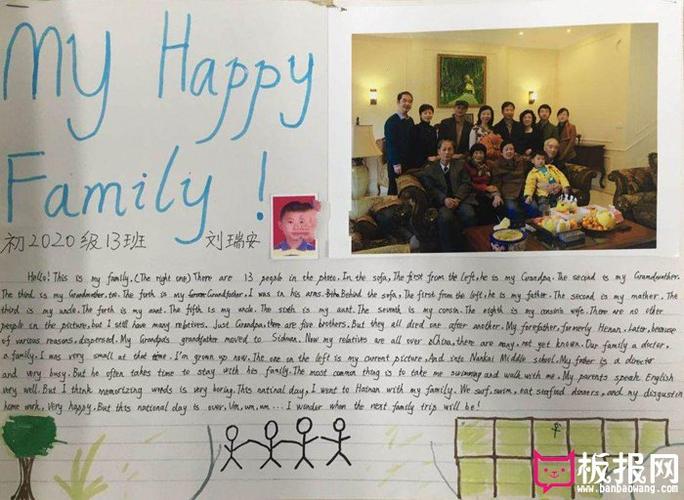 My Happy
Family!
初2020级13班 刘瑞安
Hello! This is my family. (The right one) There are 13 people in the photo. In the sofa, The first from the left, he is my Grandpa. The second is my Grandmather.
The third is my Grandmother too. The forth is my Grandfather, I was in his arms. Behind the sofa, The first from the left, he is my father. The second is my mather. The
third is my uncle. The forth is my aunt. The fifth is my uncle. The sixth is my aunt. The seventh is my cousin. The eighth is my cousin's wife. There are no other
people in the picture, but I still have many relatives. Just Grandpa, there are five brothers. But they all died one after another. My forefather, formerly Henan, later, because
of various reasons, dispersed. My Grandpa's grandfather moved to Sichuan. Now my relatives are all over China, there are many, not yet known. Our family a doctor
a family. I was very small at that time. I'm grown up now. The one on the left is my current picture. And into Nankai Middle school. My father is a director
and very busy. But he often takes time to stay with his family. The most common thing is to take me swimming and walk with me. My parents speak English
very well. But I think memorizing words is very boring. This national day, I went to Hainan with my family. We surf, swim, eat seafood dinners, and my disgustin
home work, Very happy, But this national day is over, Um, um, um ... I wonder when the next family trip will be!
板报网
www.banbaowang.com